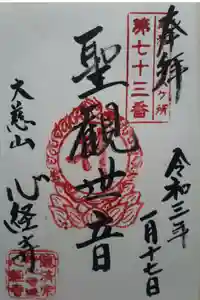 奉拝
第七十三番
聖観世音
大慈山
心経寺
令和三年
一月十七日